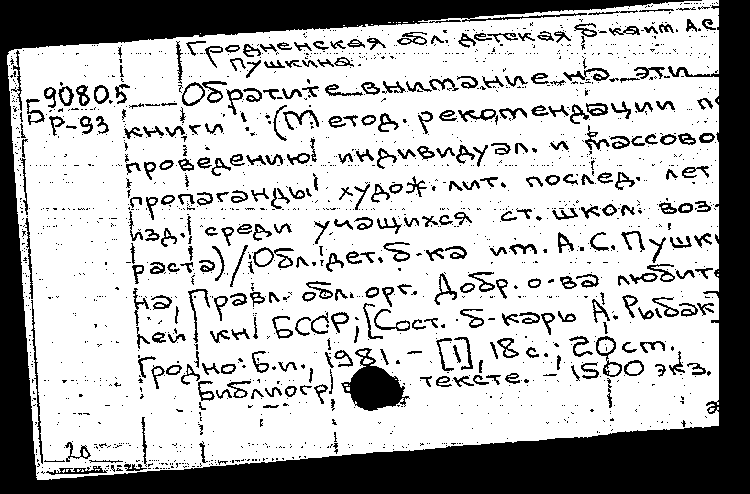 Гродненская обл. детская б-ка им. А.С.
Пушкина.
Б9080.5 Обратите внимание на эти
Р-93 книги! (Метод. рекомендации по
проведению индивидуал. и массовой
пропаганды худож. лит. послед. лет
изд. среди учащихся ст. школ. воз-
раста) / Обл. дет. б-ка им. А.С. Пушки-
на, Правл. обл. орг. Добр. о-ва любите-
лей кн. БССР; [Сост. б-карь А. Рыбак]
Гродно: Б.и., 1981. - [1], 18 с.; 20 ст.
Библиогр. в тексте. - 1500 экз.
20